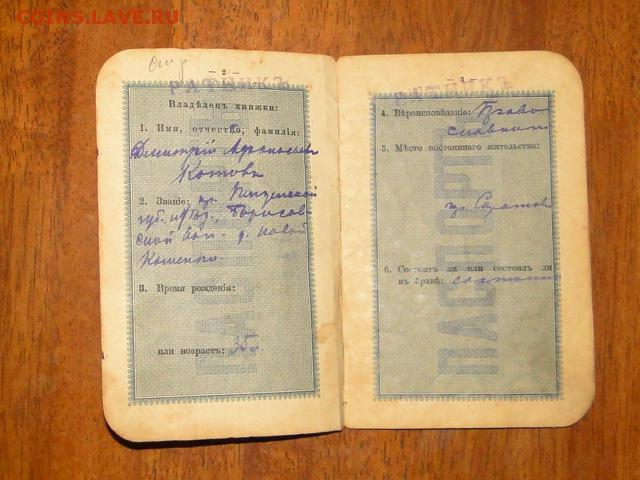 COINS.LAVE.RU
— 2 —
РАТНИКЪ
Владѣлецъ книжки:
1. Имя, отчество, фамилія:
Дмитрій
Котовъ
2. Званіе: кр. Пензенской
губ. и уѣз., Борисов-
ской вол. д. Новой
3. Время рожденія:
или возрастъ:
РАТНИКЪ
4. Вѣроисповѣданіе: Право
славный
5. Мѣсто постояннаго жительства:
гр. Саратовъ
6. Состоитъ ли или состоялъ ли
въ бракѣ: состоитъ
ПАСПОРТ